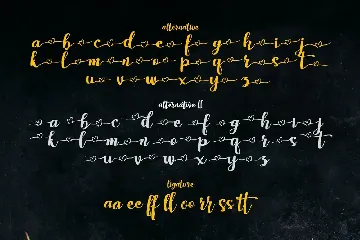 alternative
a b c d e f g h i j
k l m n o p q r s t
u v w x y z
alternative II
a b c d e f g h i j
k l m n o p q r s t
u v w x y z
ligature
aa ee ff ll oo rr ss tt